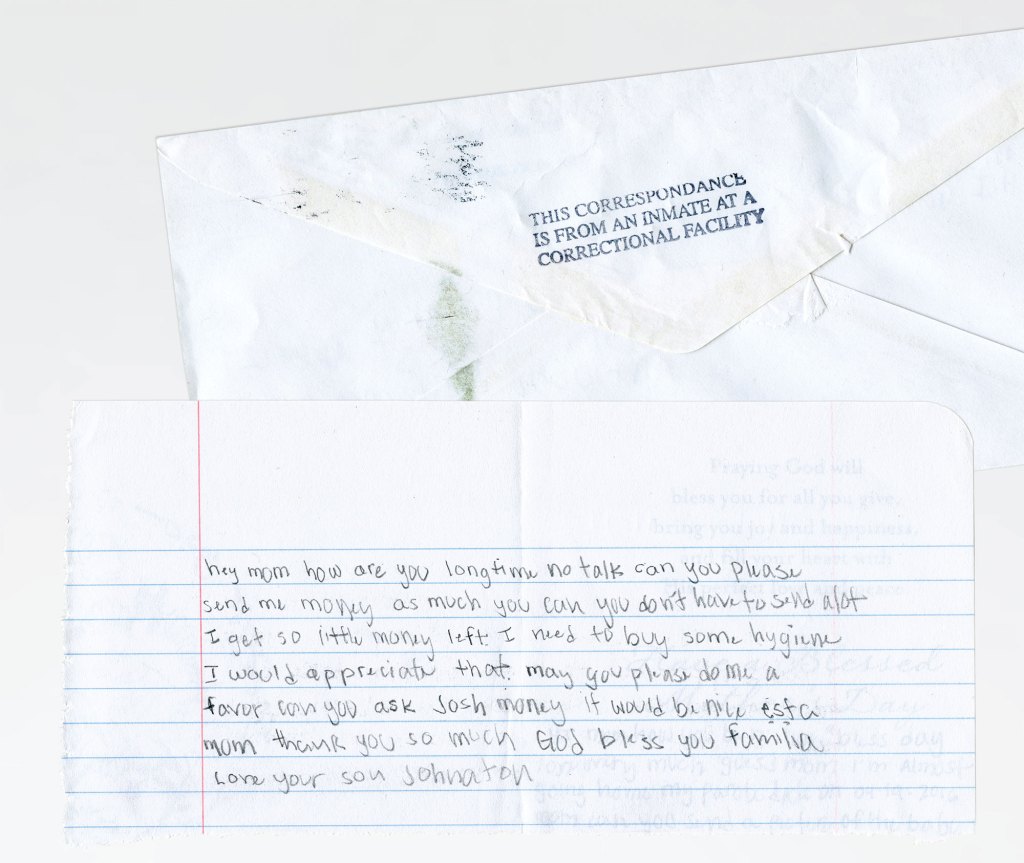 THIS CORRESPONDANCE
IS FROM AN INMATE AT A
CORRECTIONAL FACILITY
Praying God will
bless you for all you give,
bring you joy and happiness,
and fill your heart with
hey mom how are you longtime no talk can you please
send me money as much you can you don't have to send alot
I get so little money left. I need to buy some hygiene
I would appreciate that. may you please do me a
favor can you ask Josh money it would be nice esta
mom thank you so much God bless you familia
Love your son Johnaton